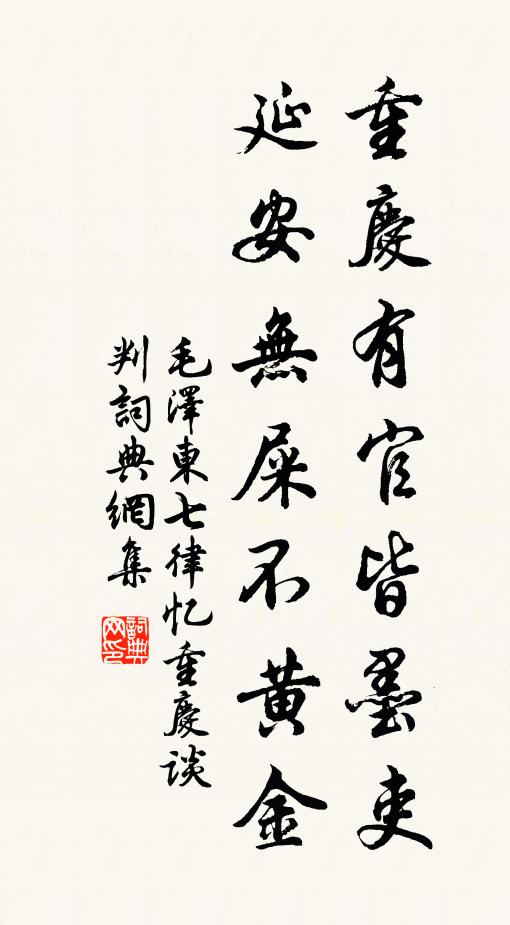 重慶有官皆墨吏
延安無屎不黄金
毛澤東七律忆重慶談
判詞典網集
詞典网印